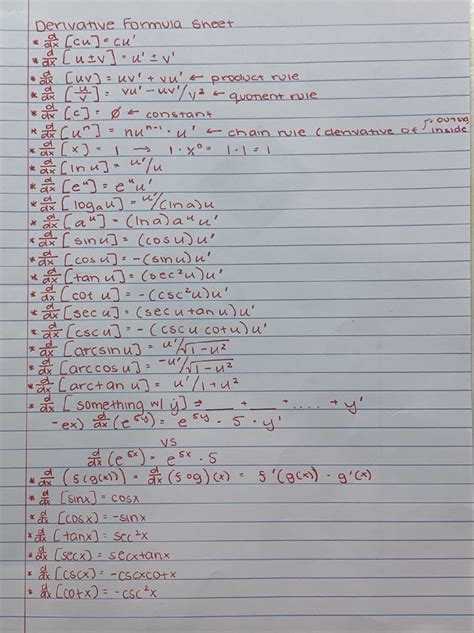 Derivative Formula Sheet
* d/dx [cu] = cu'
* d/dx [u ± v] = u' ± v'
* d/dx [uv] = uv' + vu' ← product rule
* d/dx [u/v] = vu' - uv'/v² ← quotient rule
* d/dx [c] = ∅ ← constant
* d/dx [uⁿ] = nuⁿ⁻¹ · u' ← chain rule (derivative of inside
* d/dx [x] = 1 → 1 · x⁰ = 1 · 1 = 1
* d/dx [ln u] = u'/u
* d/dx [eᵘ] = eᵘ u'
* d/dx [logₐu] = u'/(ln a)u
* d/dx [aᵘ] = (ln a)aᵘ u'
* d/dx [sin u] = (cos u)u'
* d/dx [cos u] = -(sin u)u'
* d/dx [tan u] = (sec²u)u'
* d/dx [cot u] = -(csc²u)u'
* d/dx [sec u] = (sec u tan u)u'
* d/dx [csc u] = -(csc u cot u)u'
* d/dx [arcsin u] = u'/√1-u²
* d/dx [arccos u] = -u'/√1-u²
* d/dx [arctan u] = u'/1+u²
* d/dx [something w/ y] = ___ + ___ + .... + y'
- ex) d/dx (e⁵ʸ) = e⁵ʸ · 5 · y'
vs
d/dx (e⁵ˣ) = e⁵ˣ · 5
* d/dx (f(g(x))) = d/dx (f∘g)(x) = f'(g(x)) · g'(x)
* d/dx [sinx] = cosx
* d/dx [cosx] = -sinx
* d/dx [tanx] = sec²x
* d/dx [secx] = secxtanx
* d/dx [cscx] = -cscxcotx
* d/dx [cotx] = -csc²x